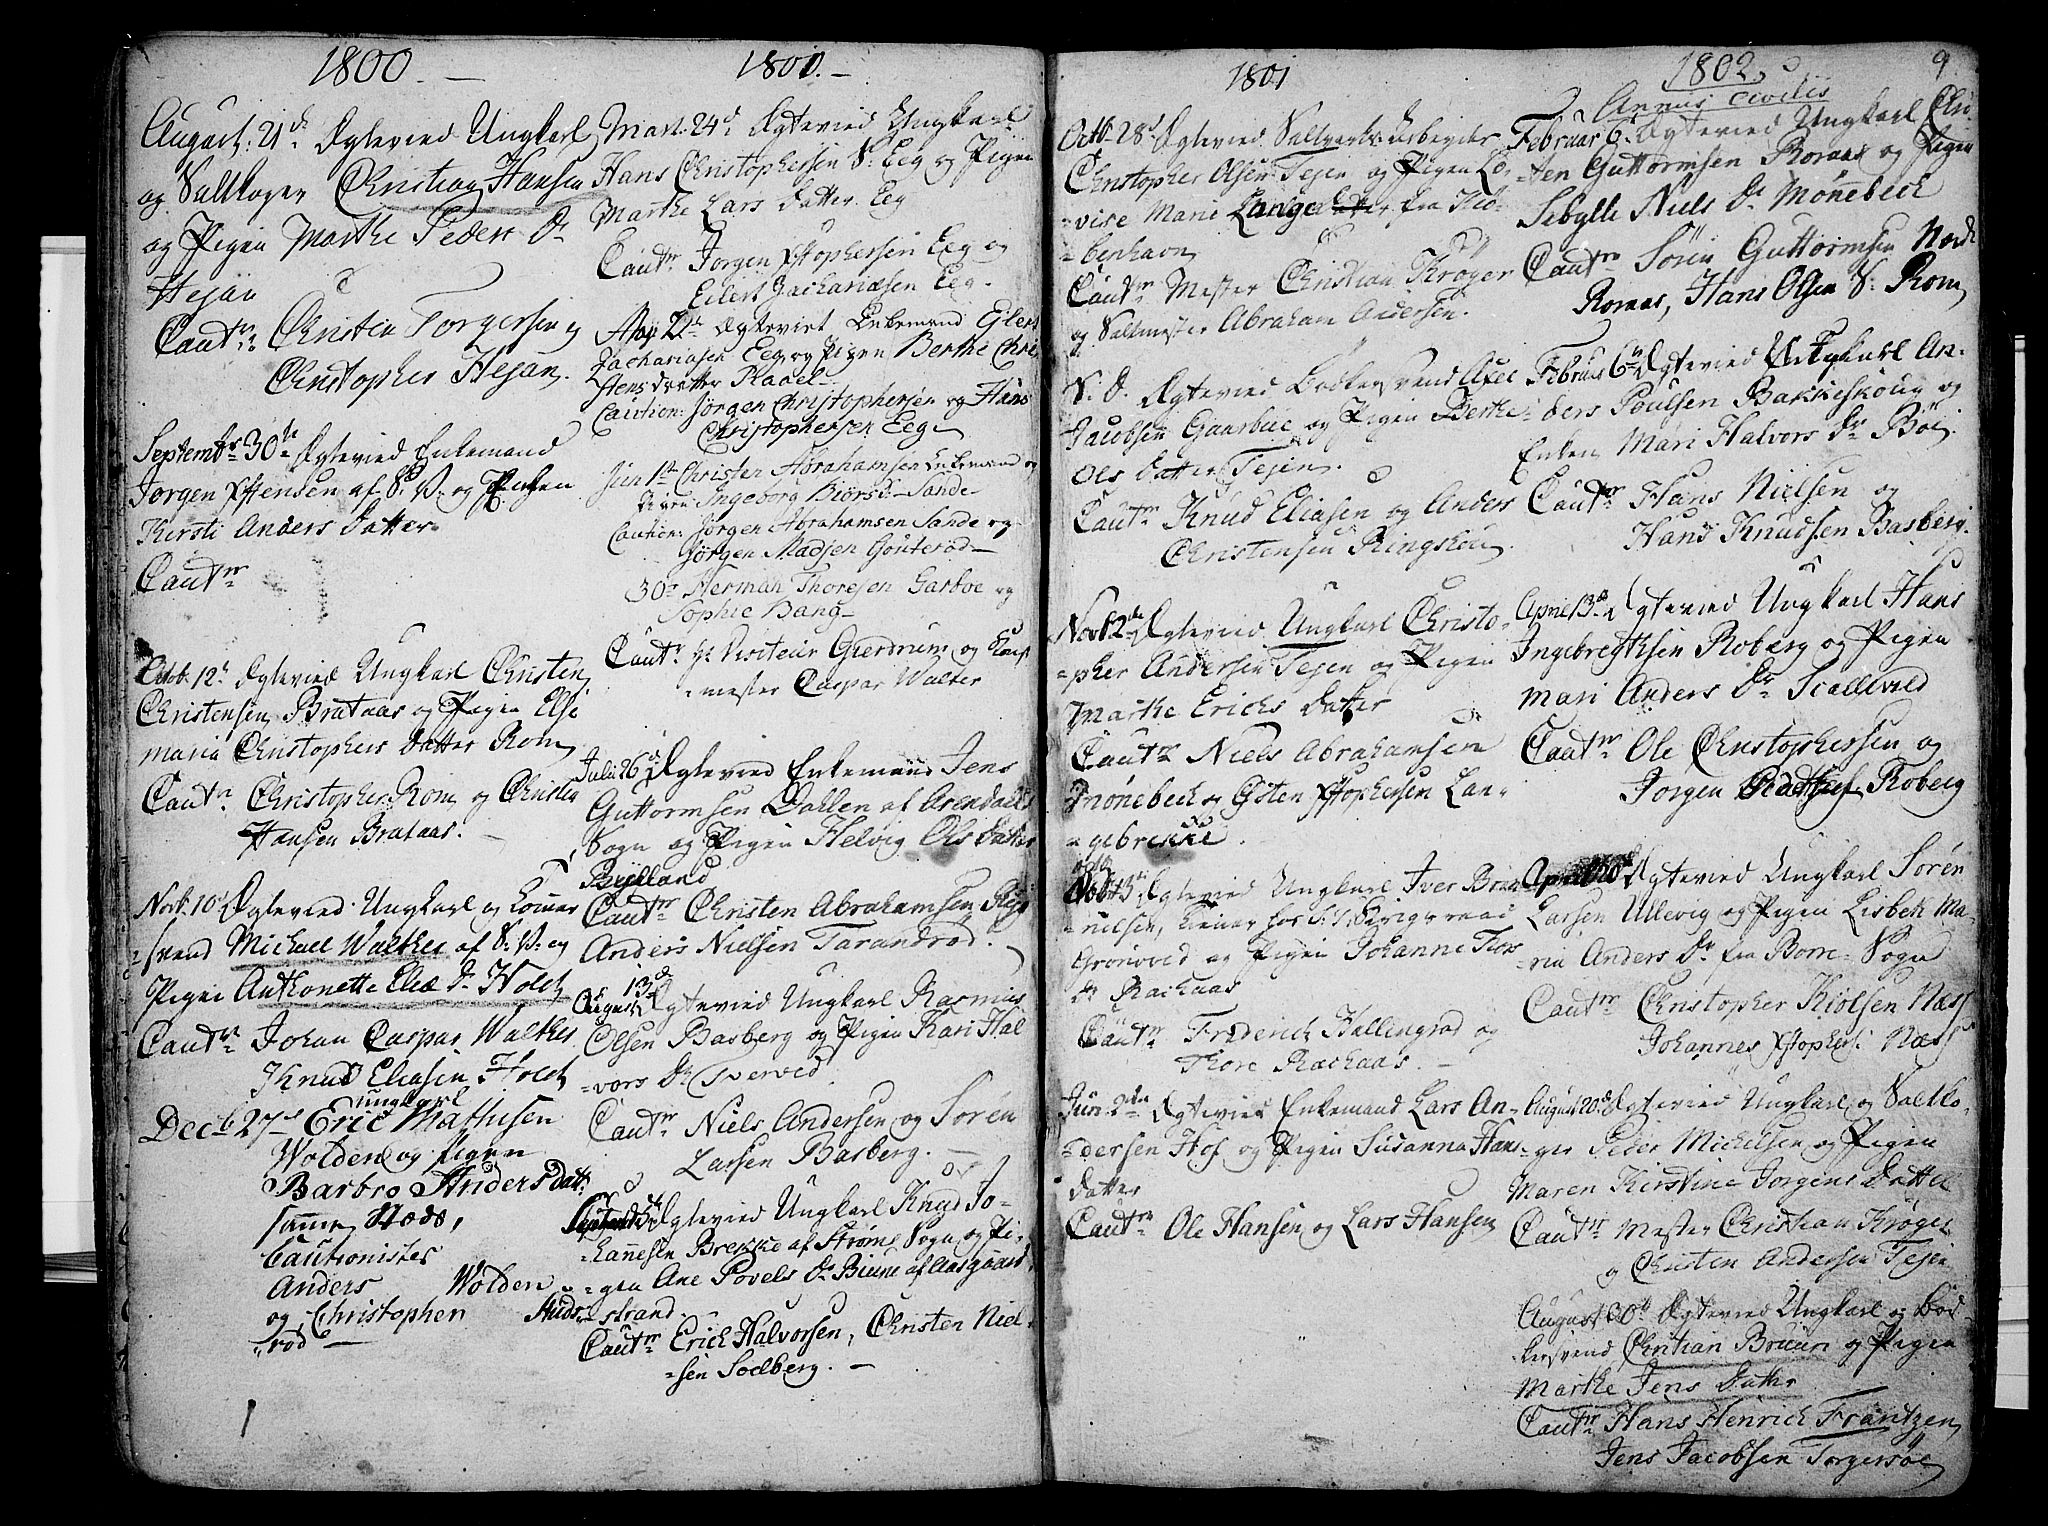 1800. —
August: 21de Ægtevied Ungkarl
og Saltkoger Christian Hansen
og Pigen Marthe Peders Dr
Hejan
Cautr: Christen Torgersen og
Christopher Hejan.
Septembr 30te Ægtevied Enkemand
Jørgen Xstensen af S: V: og Pigen
Kirsti Anders Datter
Cautnr
Octob. 12t Ægtevied Ungkarl Christen
Christensen Brataas og Pigen Else
Maria Christophers Datter Rom
Cautn Christopher Rom og Christen
Hansen Brataas. —
Novb. 10d Ægtevied Ungkarl og
=svend Michael Walther af S: V: og
Pigen Anthonette Elie Dr Holch
Cautnr Johan Caspar Walther
Knud Eliasen Holch
ungkarl
Decb 27de Eric Mathisen
Wolden og Pigen
Barbro Andersdatt:
samme Stæds,
Cautionister
Anders Wolden
og Christopher Huds=
=rød —
1801. —
Mart: 24d: Ægtevied Ungkarl
Hans Christophersen S: Eeg og Pigen
Marthe Lars Datter Eeg
Cautnr Jørgen Xstophersen Eeg og
Eilert Zachariæsen Eeg.
21de Ægteviet Enkemand Ejlert
Zachariasen Eeg og Pigen Berthe Chri
stensdatter Raael—
Caution: Jørgen Christophersen og Hans
Christophersen Eeg—
Jun 1te Christen Abrahamsen Enkemand og
Ingeborg Biørsd. Sande
Caution: Jørgen Abrahamsen Sande og
Jørgen Madsen Gouterød—
30te Herman Thoresen Garboe og
Sophie Bang—
Cautnr Hr Visiteur Gierdrum og
=mester Caspar Walter
Julii 26d Ægtevied Enkemand Jens
Guttormsen Dahlen af Arendahls
Sogn og Pigen Helvig Ols Datter
Bylland
Cautnr Christen Abrahamsen
Anders Nielsen Tarandrød.
August 13de Ægtevied Ungkarl Rasmus
Olsen Basberg og Pigen Kari Hal
=vors Dr Tverved.
Cautnr Niels Andersen og Sørén
Larsen Basberg. —
Ægtevied Ungkarl Knud Jo=
=hannesen Brekke af Strøms Sogn og Pi=
=gen Ane Povels Dr Biune af Aasgaard
=strand.
Cautnr Erich Halvorsen, Christen Niel=
=sen Sodberg. —
1801
Octb. 28d Ægtevied Saltverks Arbeyder
Christopher Olsen Tejen og Pigen Lo=
=vise Marie Lange fra Kiø=
=benhavn
Cautnr Mester Christian Krøger
og Saltmester Abraham Andersen.
S: D. Ægtevied Bødkersvend Axel
Jacobsen Gaarbue og Pigen Berthe
Ols Datter Tejen.
Cautnr Knud Eliasen og Anders
Christensen Ringskou.
Novb. 12de Ægtevied Ungkarl Christo=
=pher Andersen Tejen og Pigen
Marthe Erichs Datter
Cautnr Niels Abrahamsen
Mønebech og Østen Xstophersen Lan=
=gebrekke.
13de Ægtevied Ungkarl Iver
=nielsen, tiener hos
Grønved og Pigen Johanne Thor
Dr Rachaas
Cautnr Frøderich Hallingrød og
Thore Rachaas. —
Jun: 2den Ægtevied Enkemand Lars An=
=dersen Hof og Pigen Susanna Hans
Datter
Cautnr Ole Hansen og Lars Hansen
1802.
9
Annus civilis
Februar 6te Ægtevied Ungkarl Chri
=sten Guttormsen Roraas og Pigen
Sebylle Niels Dr Mønebeck
Cautnr Sörin Guttormsen Nordr
Roraas, Hans Olsen S: Rom
Februar 6te Ægtevied Ungkarl An=
=ders Poulsen Bakkeskoug og
Enken Mari Halvors Dr Böe
Cautnr Hans Nielsen og
Hans Knudsen Basberg.
April 13de Ægtevied Ungkarl Hans
Ingebregtsen Roberg og Pigen
Mari Anders Dr Scallevold
Cautnr Ole Christophersen og
Jørgen Roberg
April 20de Ægtevied Ungkarl Sørén
Larsen Ullevig og Pigen Lisbeth Ma=
=ria Anders Dr fra Borre Sogn
Cautnr Christopher Kiølsen Næss
Johannes Xstophers: Næss
August 20de Ægtevied Ungkarl og Saltko=
=ger Peder Michelsen og Pigen
Maren Kirstine Jorgens Datter
Cautnr Mester Christian Krøger
og Christen Andersen Tejen
August 30te Ægtevied Ungkarl og Bød
kersvend Christian Bruun og Pigen
Marthe Jens Datter
Cautnr Hans Henrich Frantzen
Jens Jacobsen Torgersøe